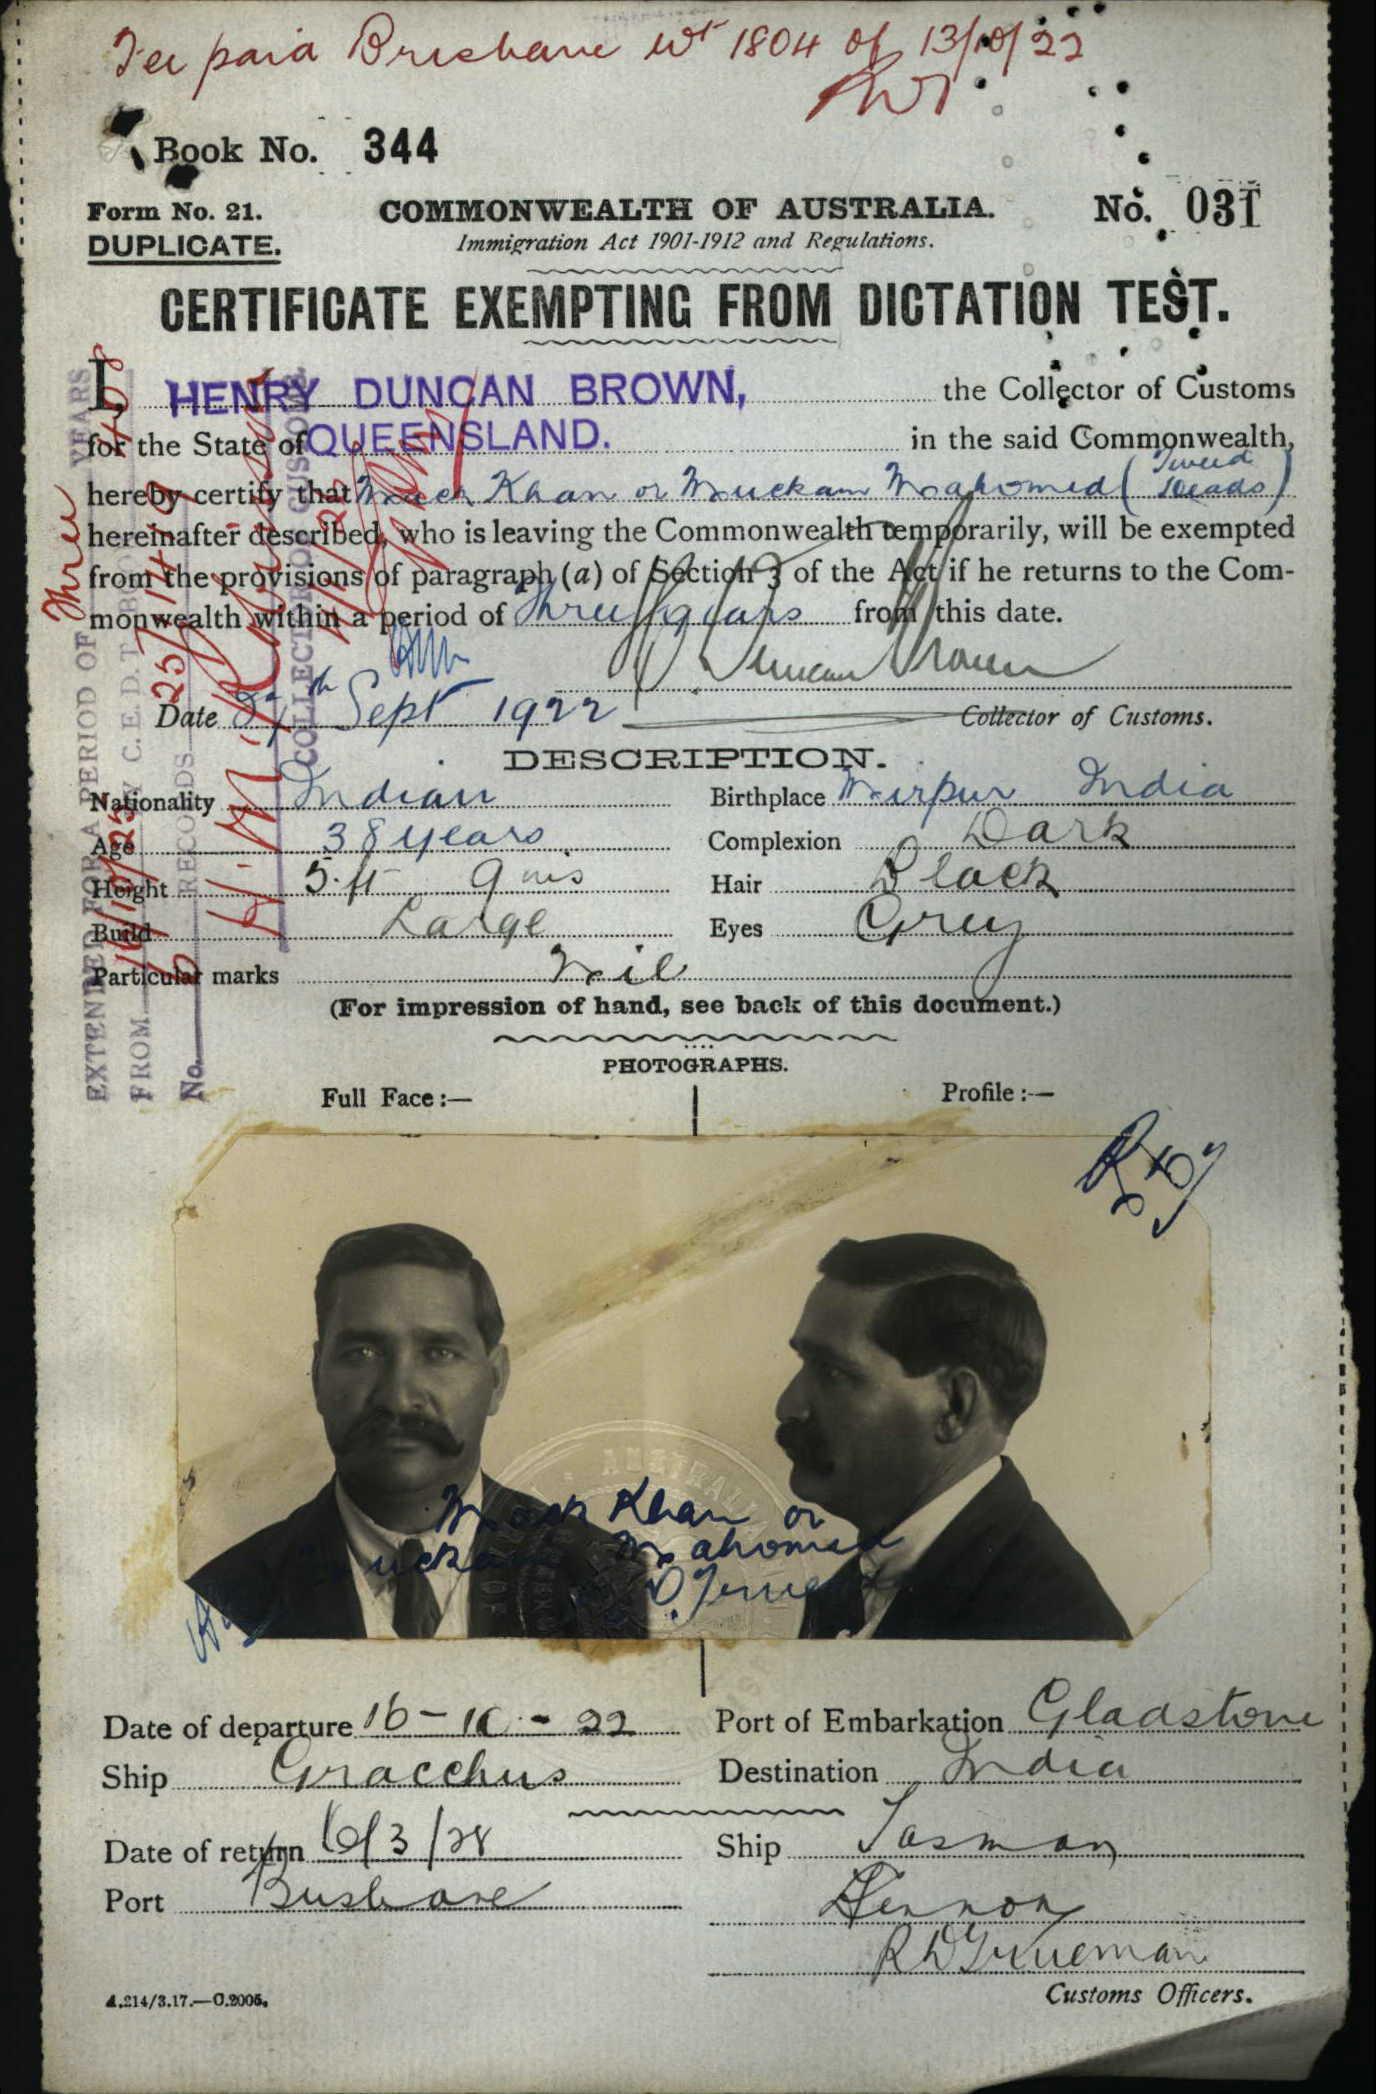 Fee paid Brisbane wt 1804 of 13/10/22
Book No. 344
Form No. 21.
DUPLICATE.
COMMONWEALTH OF AUSTRALIA.
No. 031
Immigration Act 1901-1912 and Regulations.
CERTIFICATE EXEMPTING FROM DICTATION TEST.
I, HENRY DUNCAN BROWN, the Collector of Customs
for the State of QUEENSLAND. in the said Commonwealth,
hereby certify that Mack Khan or Muckam Mahomed (Tweed Heads)
hereinafter described, who is leaving the Commonwealth temporarily, will be exempted
from the provisions of paragraph (a) of Section 3 of the Act if he returns to the Com-
monwealth within a period of three years from this date.
H Duncan Brown
Date 27th Sept 1922 Collector of Customs.
EXTENDED FOR A PERIOD OF Three YEARS
FROM
C.E.D.T. BOOK
No. RECORDS
COLLECTOR OF CUSTOMS
DESCRIPTION.
Nationality Indian Birthplace Mirpur India
Age 38 years Complexion Dark
Height 5 ft 9 ins Hair Black
Build Large Eyes Grey
Particular marks Nil
(For impression of hand, see back of this document.)
PHOTOGRAPHS.
Full Face:— Profile:—
Mack Khan or
Muckam Mahomed
Date of departure 16-10-22 Port of Embarkation Gladstone
Ship Gracchus Destination India
Date of return 16/3/28 Ship Tasman
Port Brisbane
R D Trueman
Customs Officers.
A.214/3.17.—C.2005.